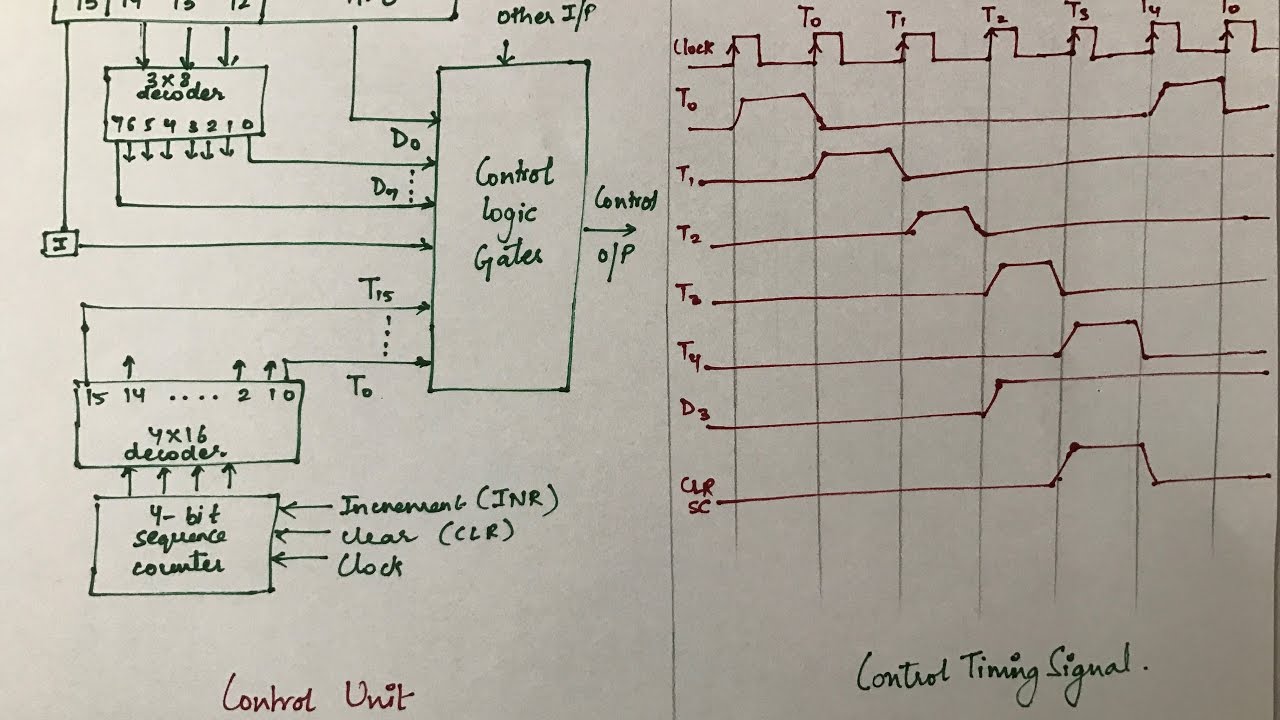 15 14 13 12
other I/P
3×8
decoder
7 6 5 4 3 2 1 0
D0
D7
I
Control
logic
Gates
Control
O/P
T15
T0
15 14 .... 2 1 0
4×16
decoder.
4-bit
sequence
counter
Increment (INR)
clear (CLR)
Clock
Control Unit
T0 T1 T2 T3 T4 T0
Clock
T0
T1
T2
T3
T4
D3
CLR
SC
Control Timing Signal.